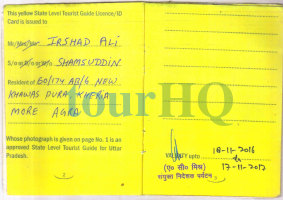 This yellow State Level Tourist Guide Licence/ID
Card is issued to
Mr./Mrs/Ms IRSHAD ALI
S/o SHAMSUDDIN
Resident of 60/174 AB/6 NEW
KHAWAS PURA KHERIA
MORE AGRA
tourHQ
Whose photograph is given on page No. 1 is an
approved State Level Tourist Guide for Uttar
Pradesh.
VALIDITY upto 18-11-2016
to
17-11-2017
(ए० सी० मिश्र)
संयुक्त निदेशक पर्यटन